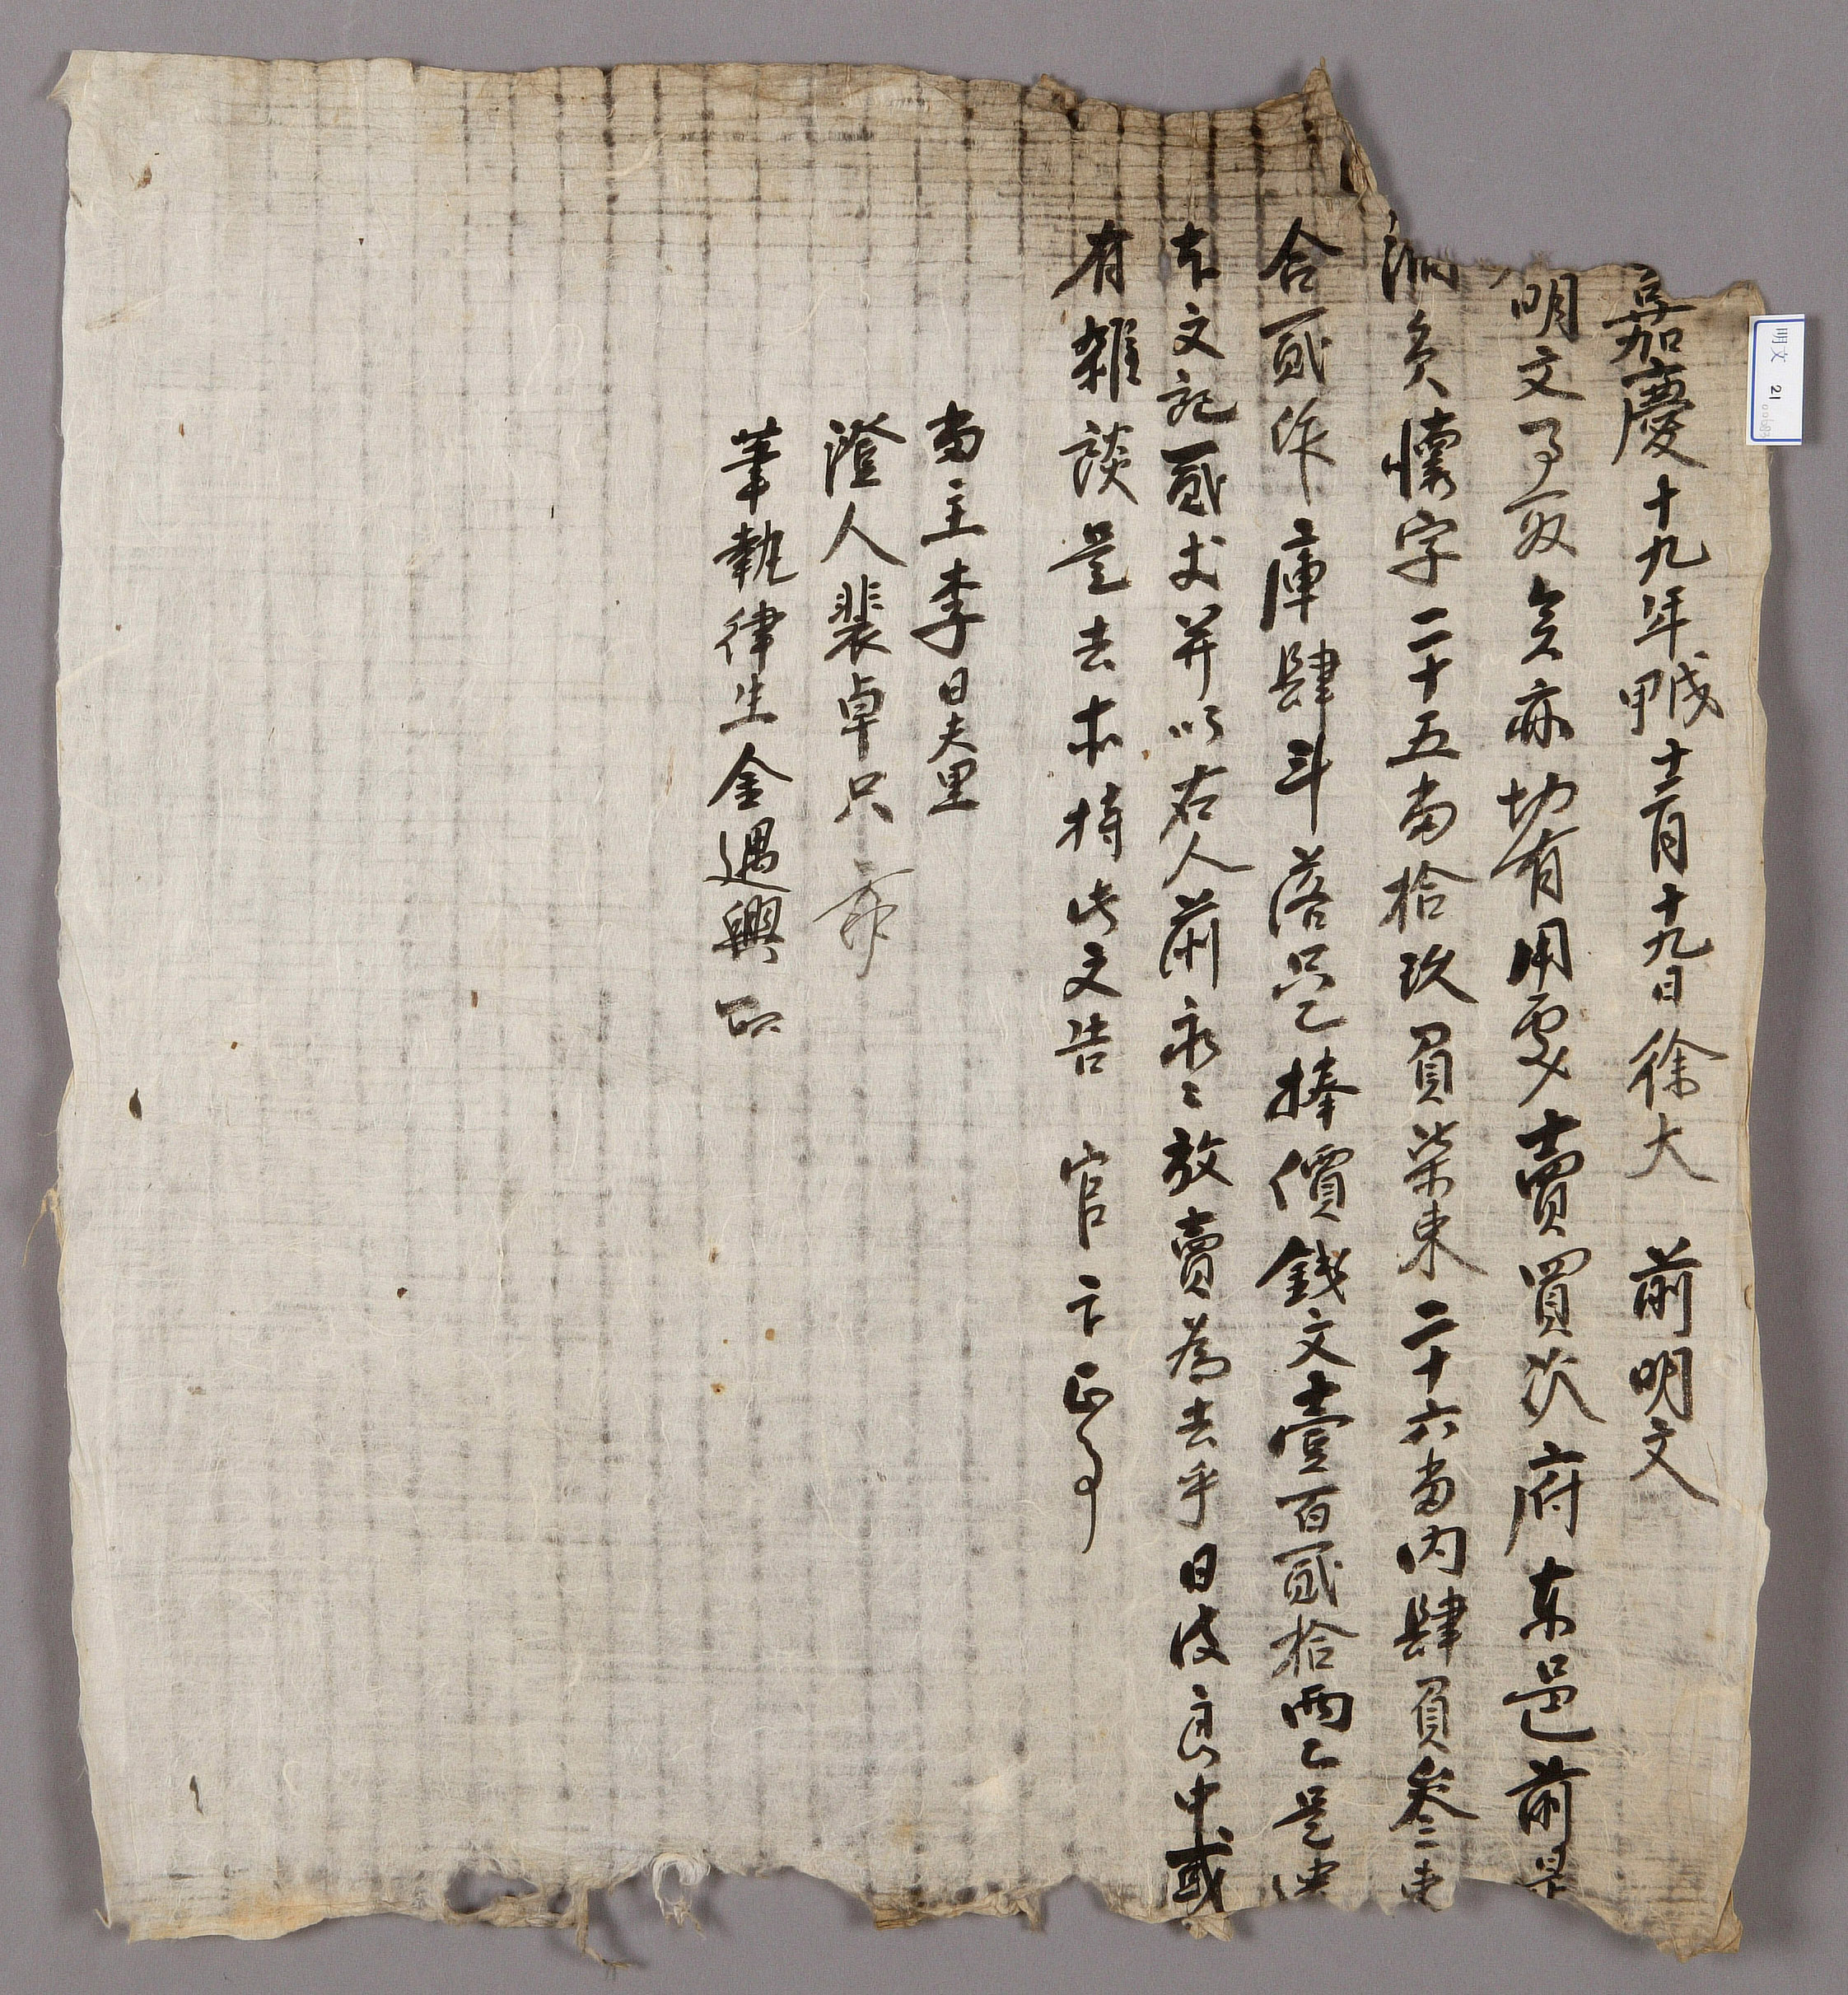 嘉慶十九年甲戌十二月十九日徐大 前明文
明文事段矣亦切有用處賣買次府東邑前
員懷字二十五畓拾玖負柒束二十六畓內肆負叄束
合貳作庫肆斗落只乙捧價錢文壹百貳拾兩乙是
本文記貳丈并以右人前永々放賣爲去乎日後良中或
有雜談是去木持此文告 官卞正事
畓主李日夫里
澄人裴卓只
筆執律生金遇興
明文 21